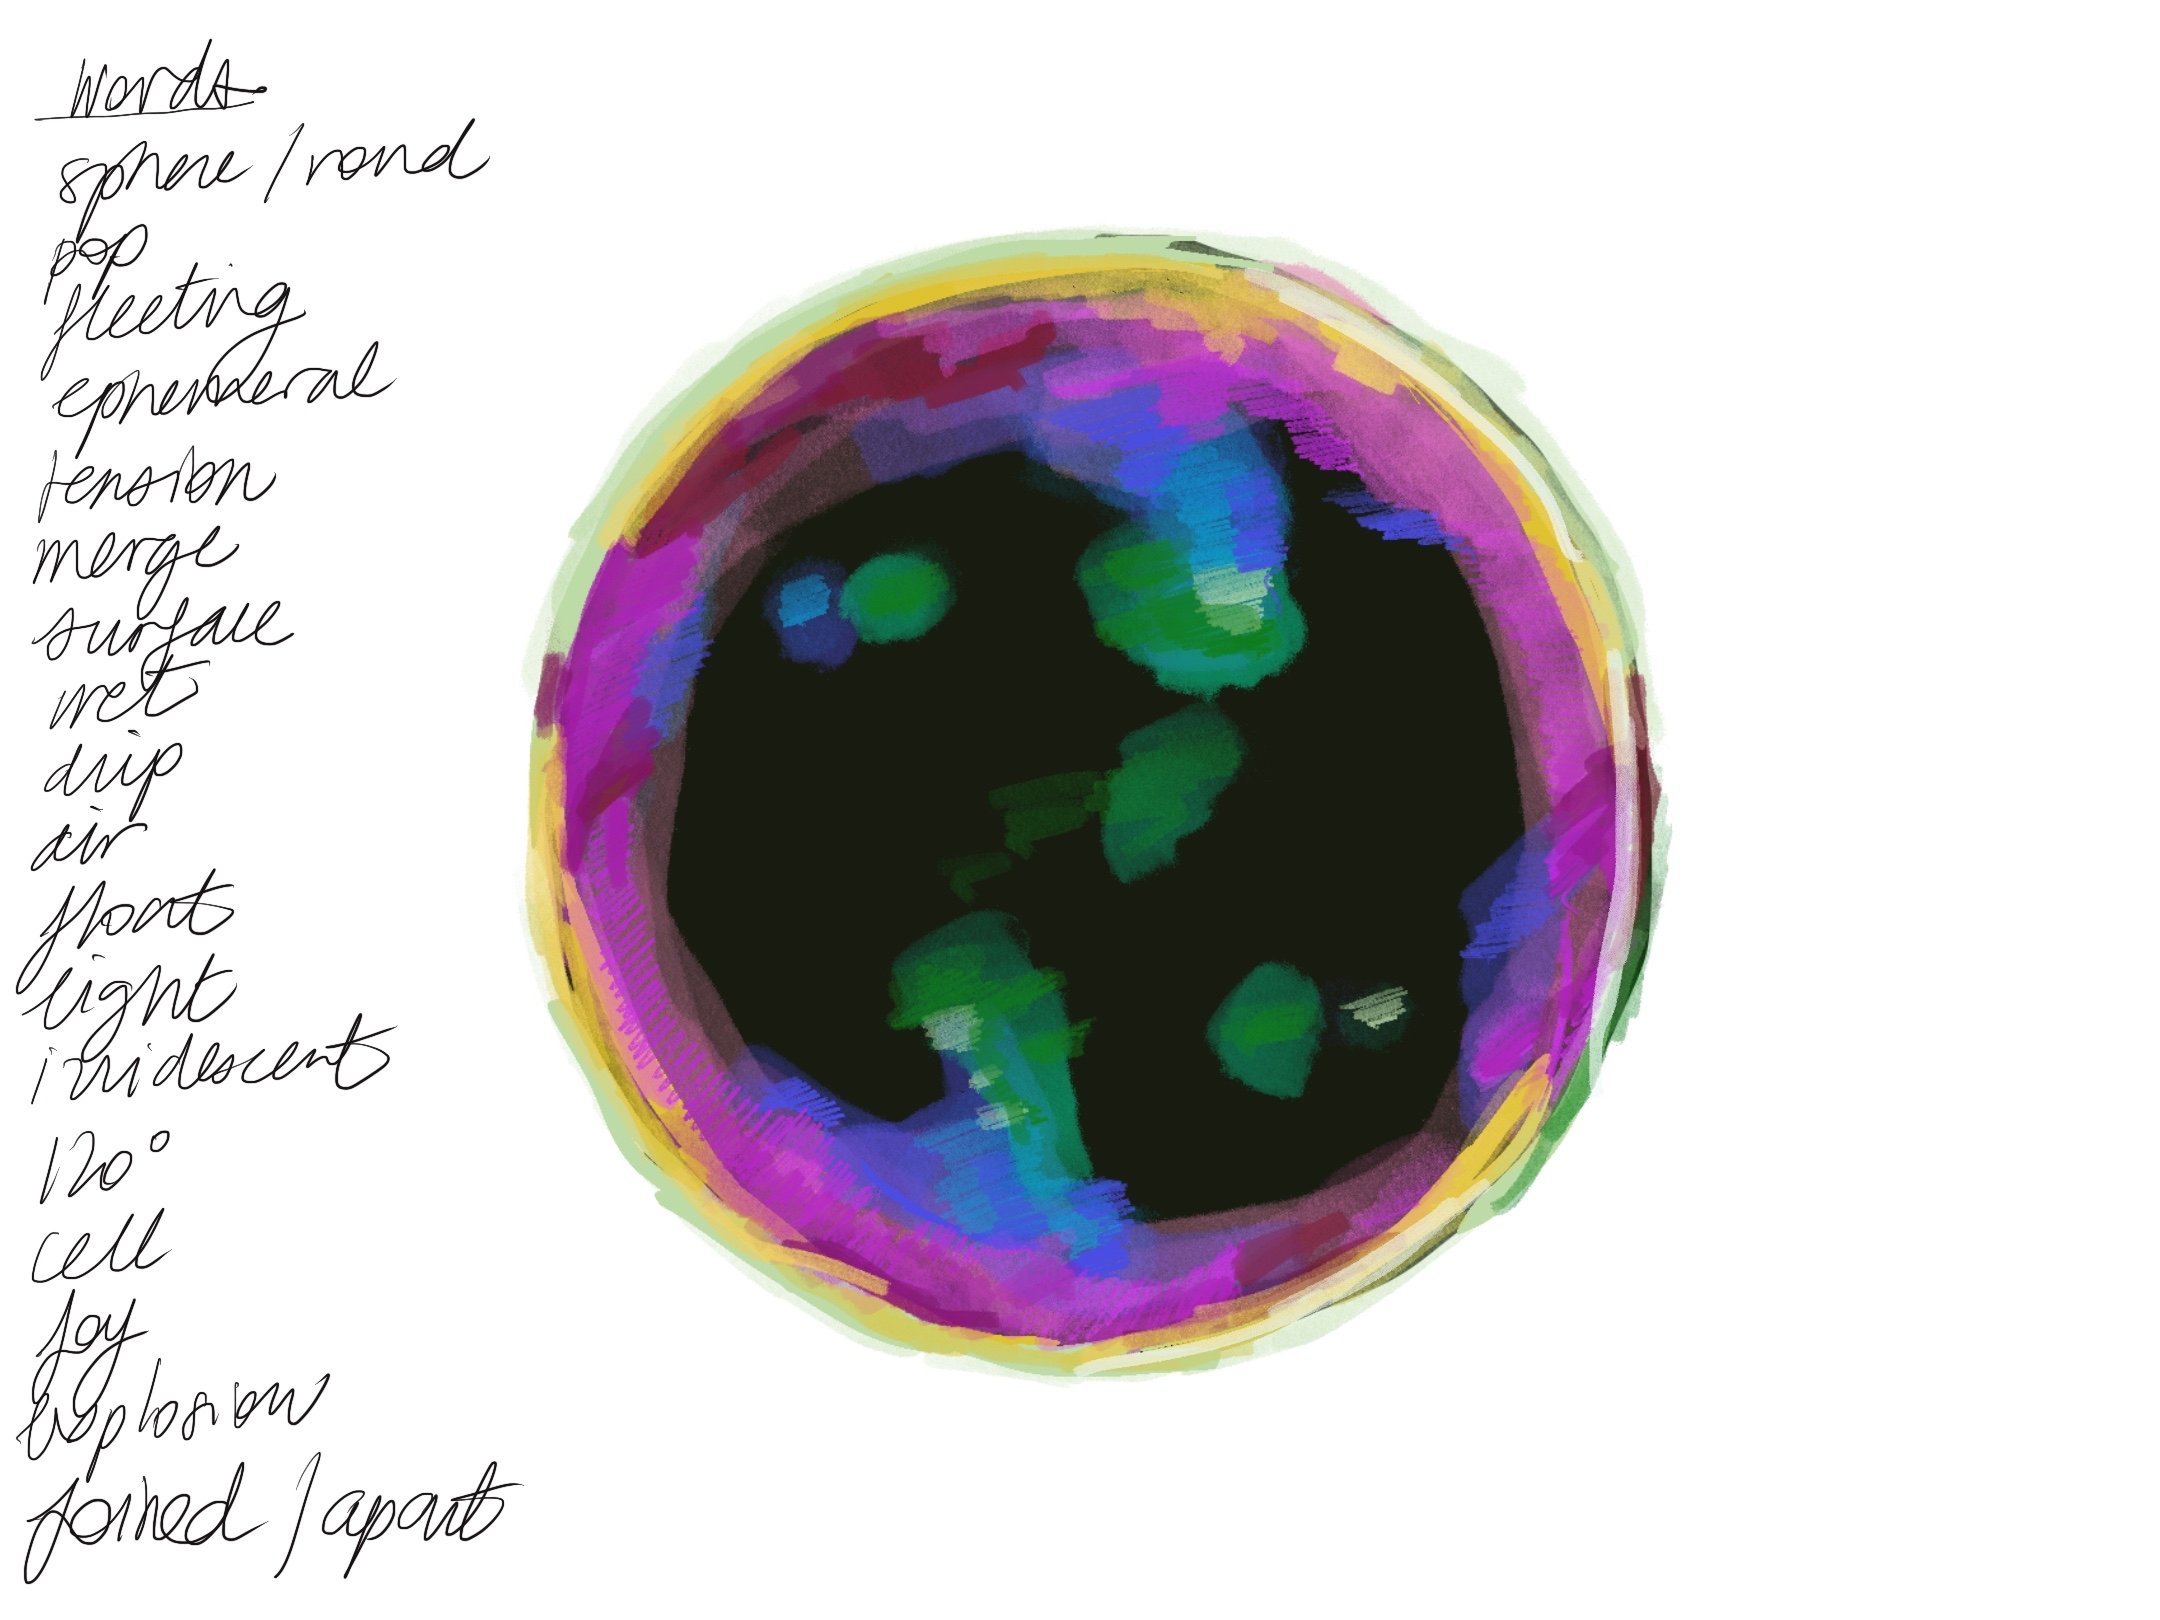 words
sphere / rond
pop
fleeting
ephemeral
tension
merge
surface
wet
drip
air
float
light
irridescent
120°
cell
joy
explosion
joined / apart